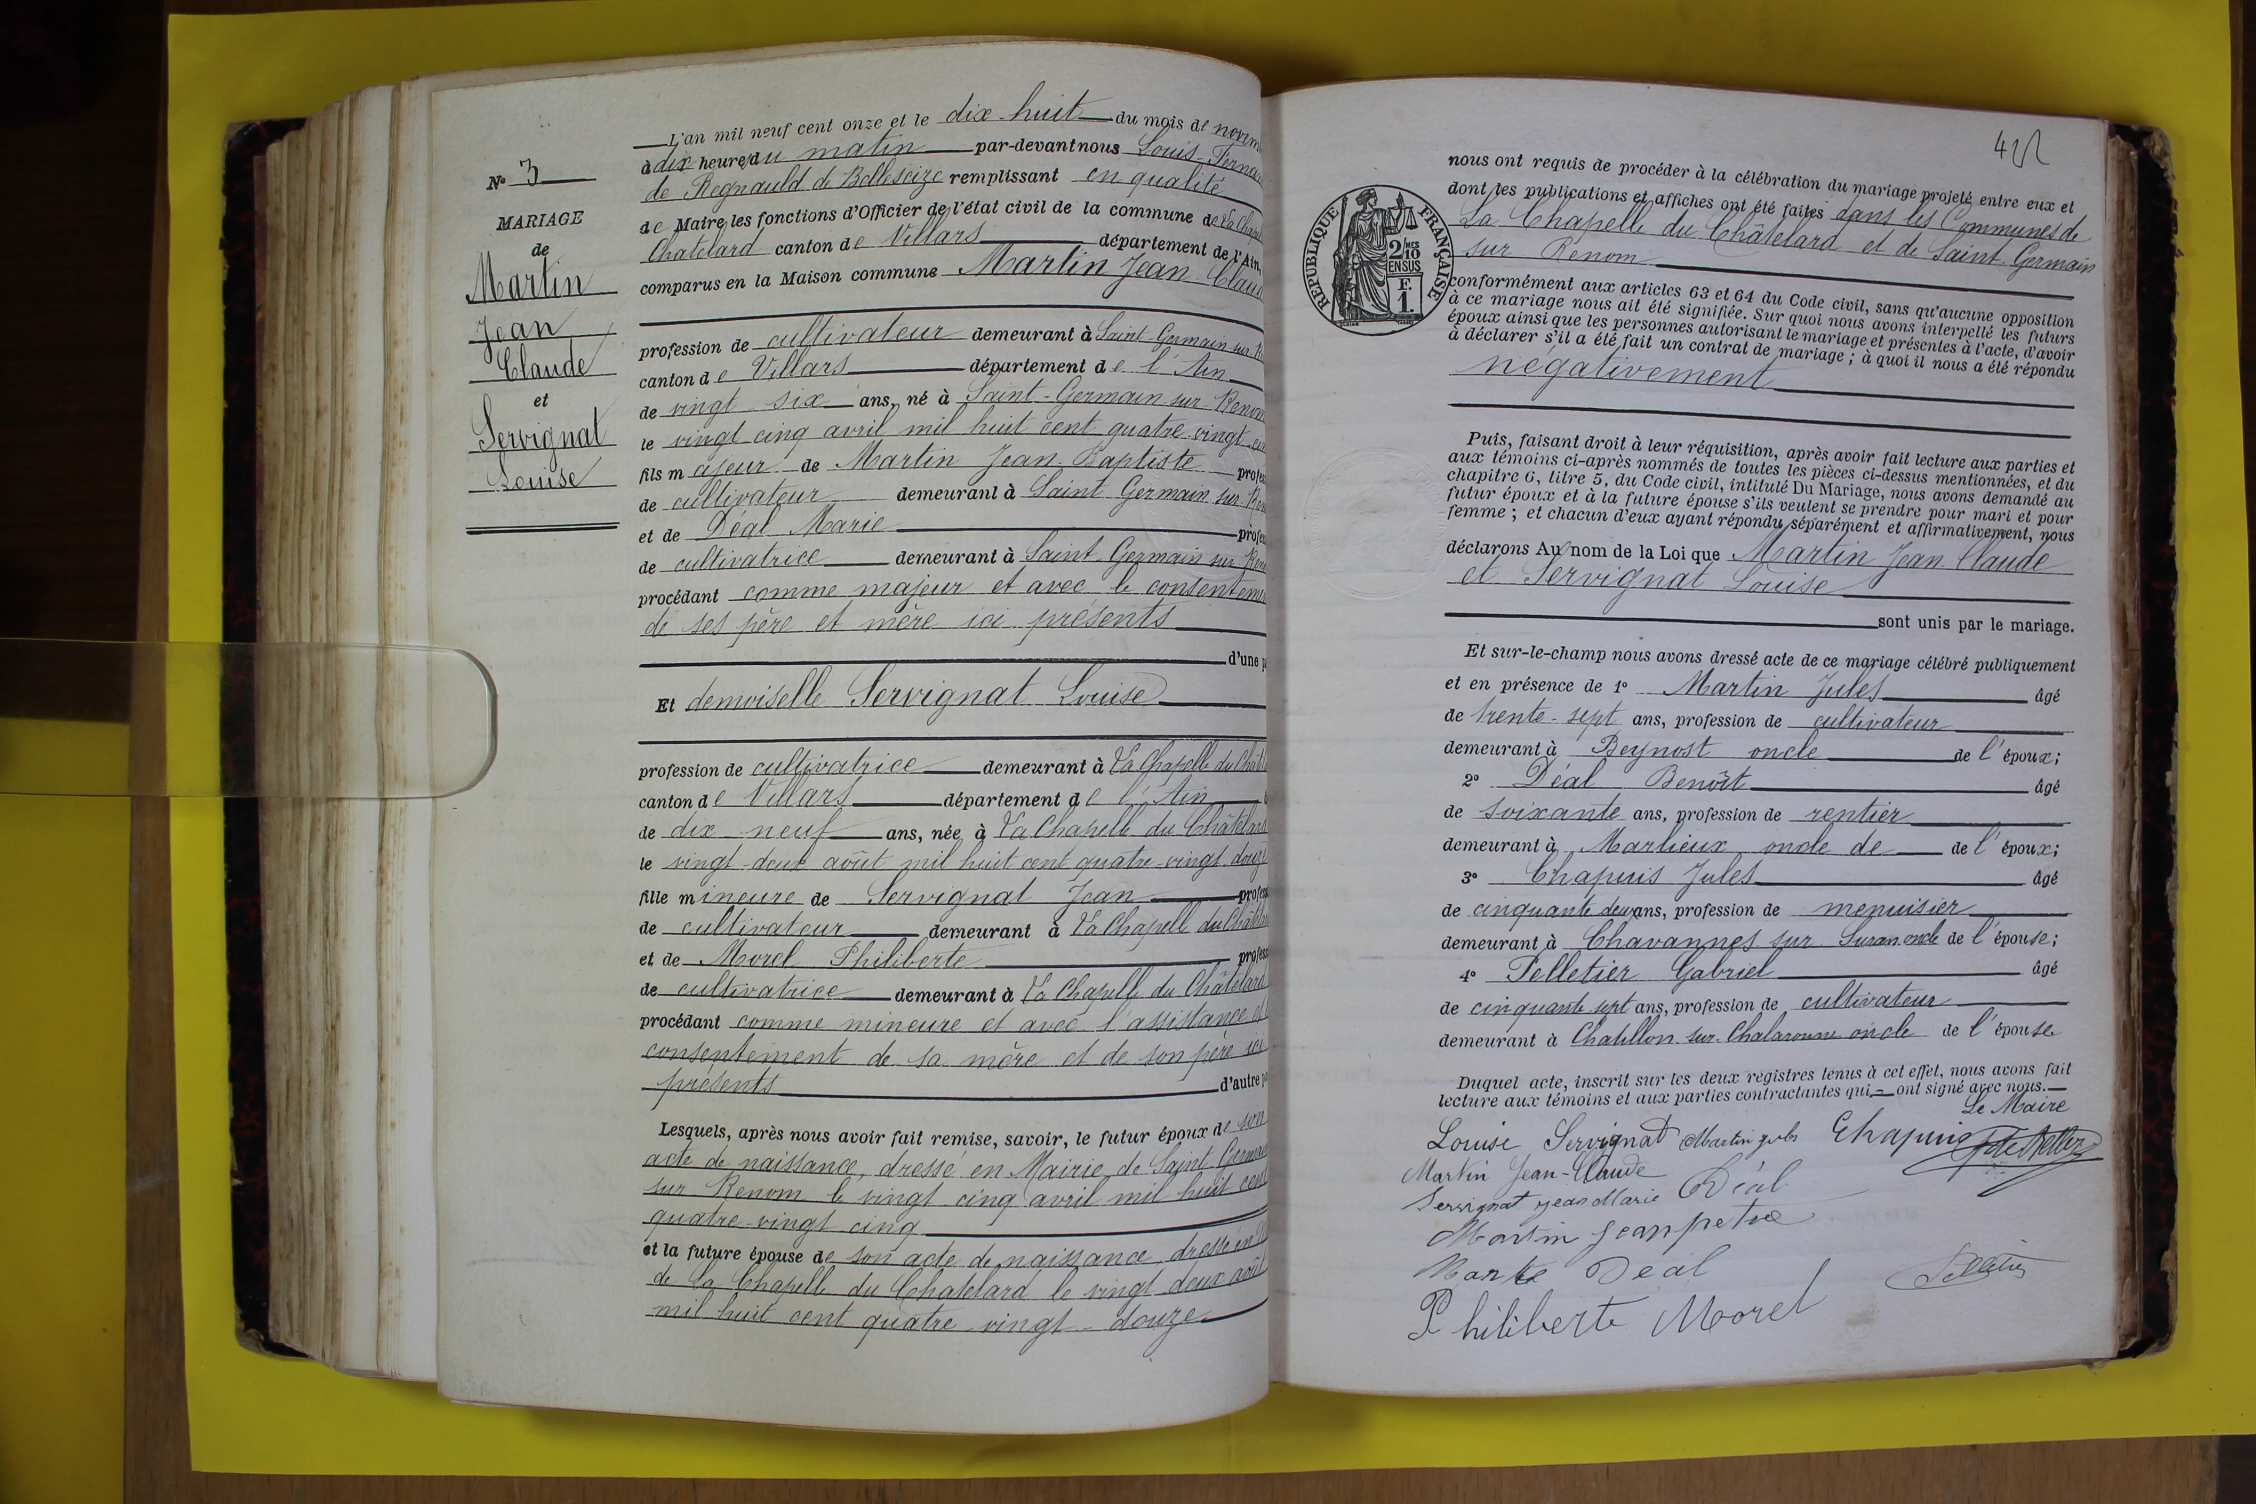 L'an mil neuf cent onze et le dix-huit du mois de novem
N° 3
à dix heures du matin par-devant nous Louis-Fernan
de Regnauld de Belleseize remplissant en qualité
MARIAGE
de
Martin
Jean
Claude
et
Servignat
Louise
de Maire les fonctions d'Officier de l'état civil de la commune de La Chape
Châtelard canton de Villars département de l'Ain,
comparus en la Maison commune Martin Jean Claud
profession de cultivateur demeurant à Saint-Germain-sur-R
canton de Villars département de l'Ain
de vingt-six ans, né à Saint-Germain sur Renom
le vingt cinq avril mil huit cent quatre-vingt cin
fils majeur de Martin Jean-Baptiste profes
de cultivateur demeurant à Saint Germain sur Ren
et de Déal Marie profes
de cultivatrice demeurant à Saint-Germain sur Reno
procédant comme majeur et avec le consenteme
de ses père et mère ici présents
d'une p
Et demoiselle Servignat Louise
profession de cultivatrice demeurant à La Chapelle du Châte
canton de Villars département de l'Ain
de dix-neuf ans, née à La Chapelle du Châtelard
le vingt-deux août mil huit cent quatre-vingt douze
fille mineure de Servignat Jean profess
de cultivateur demeurant à La Chapelle du Châtela
et de Morel Philiberte profess
de cultivatrice demeurant à La Chapelle du Châtelard
procédant comme mineure et avec l'assistance et
consentement de sa mère et de son père ici
présents d'autre pa
Lesquels, après nous avoir fait remise, savoir, le futur époux de son
acte de naissance, dressé en Mairie de Saint-Germain
sur Renom le vingt cinq avril mil huit cent
quatre-vingt cinq
et la future épouse de son acte de naissance, dressé en
de La Chapelle du Chatelard le vingt-deux août
mil huit cent quatre-vingt-douze
nous ont requis de procéder à la célébration du mariage projeté entre eux et
dont les publications et affiches ont été faites dans les Communes de
La Chapelle du Châtelard et de Saint-Germain
sur Renom
RÉPUBLIQUE FRANÇAISE
2/10MES
EN SUS
F.
1.
conformément aux articles 63 et 64 du Code civil, sans qu'aucune opposition
à ce mariage nous ait été signifiée. Sur quoi nous avons interpellé les futurs
époux ainsi que les personnes autorisant le mariage et présentes à l'acte, d'avoir
à déclarer s'il a été fait un contrat de mariage ; à quoi il nous a été répondu
négativement
Puis, faisant droit à leur réquisition, après avoir fait lecture aux parties et
aux témoins ci-après nommés de toutes les pièces ci-dessus mentionnées, et du
chapitre 6, titre 5, du Code civil, intitulé Du Mariage, nous avons demandé au
futur époux et à la future épouse s'ils veulent se prendre pour mari et pour
femme ; et chacun d'eux ayant répondu séparément et affirmativement, nous
déclarons Au nom de la Loi que Martin Jean Claude
et Servignat Louise
sont unis par le mariage.
Et sur-le-champ nous avons dressé acte de ce mariage célébré publiquement
et en présence de 1° Martin Jules âgé
de trente-sept ans, profession de cultivateur
demeurant à Beynost oncle de l'époux ;
2° Déal Benoît âgé
de soixante ans, profession de rentier
demeurant à Marlieux oncle de de l'époux ;
3° Chapuis Jules âgé
de cinquante deux ans, profession de menuisier
demeurant à Chavannes sur Suran oncle de l'épouse ;
4° Pelletier Gabriel âgé
de cinquante sept ans, profession de cultivateur
demeurant à Chatillon-sur-Chalaronne oncle de l'épouse
Duquel acte, inscrit sur les deux registres tenus à cet effet, nous avons fait
lecture aux témoins et aux parties contractantes qui ont signé avec nous.
Le Maire
Louise Servignat Martin Jules Chapuis
Martin Jean-Claude
Servignat Jean Marie Déal
Martin Jean
Marie Déal
Pelletier
Philiberte Morel